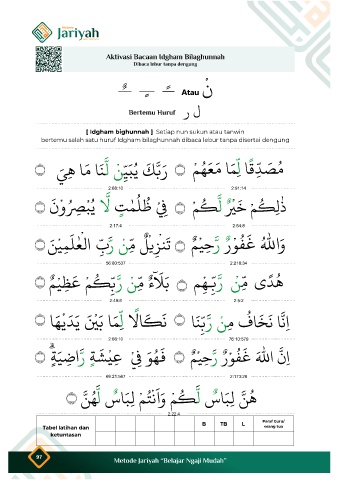 Jariyah
Aktivasi Bacaan Idgham Bilaghunnah
Dibaca lebur tanpa dengung
ـٌ ـٍ ـً Atau نْ
Bertemu Huruf ل ر
[ Idgham bighunnah ] Setiap nun sukun atau tanwin
bertemu salah satu huruf Idgham bilaghunnah dibaca lebur tanpa disertai dengung
مُصَدِّقًا لِّمَا مَعَهُمْ رَبَّكَ يُبَيِّنْ لَّنَا مَا هِيَ
2:68:10 2:91:14
ذٰلِكُمْ خَيْرٌ لَّكُمْ فِيْ ظُلُمٰتٍ لَّا يُبْصِرُوْنَ
2:17:4 2:54:8
وَاللهُ غَفُوْرٌ رَّحِيْمٌ تَنْزِيْلٌ مِّنْ رَّبِّ الْعٰلَمِيْنَ
56:80:537 2:218:34
هُدًى مِّنْ رَّبِّهِمْ بَلَآءٌ مِّنْ رَّبِّكُمْ عَظِيْمٌ
2:49:8 2:5:2
اِنَّا نَخَافُ مِنْ رَّبِّنَا نَكَالًا لِّمَا بَيْنَ يَدَيْهَا
2:66:10 76:10:579
اِنَّ اللهَ غَفُوْرٌ رَّحِيْمٌ فَهُوَ فِيْ عِيْشَةٍ رَّاضِيَةٍ
69:21:567 2:173:26
هُنَّ لِبَاسٌ لَّكُمْ وَاَنْتُمْ لِبَاسٌ لَّهُنَّ
Tabel latihan dan ketuntasan B TB L Paraf Guru/ orang tua
97 Metode Jariyah "Belajar Ngaji Mudah"